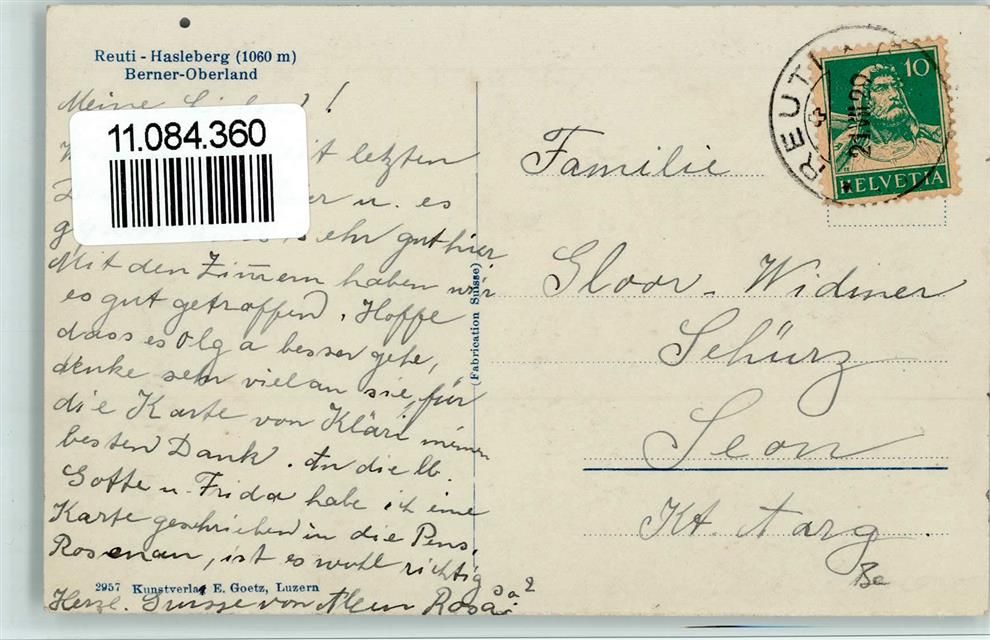 Reuti - Hasleberg (1060 m)
Berner-Oberland
Meine !
11.084.360
letzten
u. es
sehr gut hier
Mit den Zimmern haben wir
es gut getroffen. Hoffe
dass es Olga besser gehe,
denke sehr viel an sie, für
die Karte von Kläri meinen
besten Dank. An die lb.
Gotte u. Frida habe ich eine
Karte geschrieben in die Pens.
Rosenau, ist es wohl richtig
so?
Herzl. Grüsse von Rosa
2957 Kunstverlag E. Goetz, Luzern
(Fabrication Suisse)
REUTI
21.VII.29
10
HELVETIA
Familie
Gloor-Widmer
Schürz
Seon
Kt. Aarg